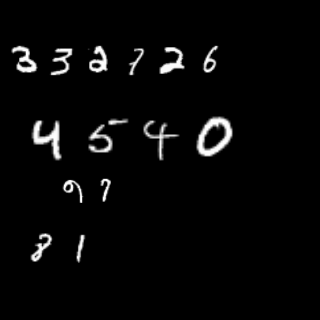 332726
4540
97
81